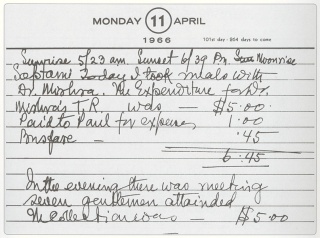 MONDAY 11 APRIL
1966
101st day - 264 days to come
Sunrise 5/23 am. Sunset 6/39 Pm Moonrise
Saptami Today I took meals with
Dr. Mishra. The Expenditure for Dr.
Mishra's T.R. was — $5.00.
Paid to Paul for expenses 1.00
Bonsfare — .45
6.45
In the evening there was meeting
seven gentlemen attainded
The Collection was — $5.00